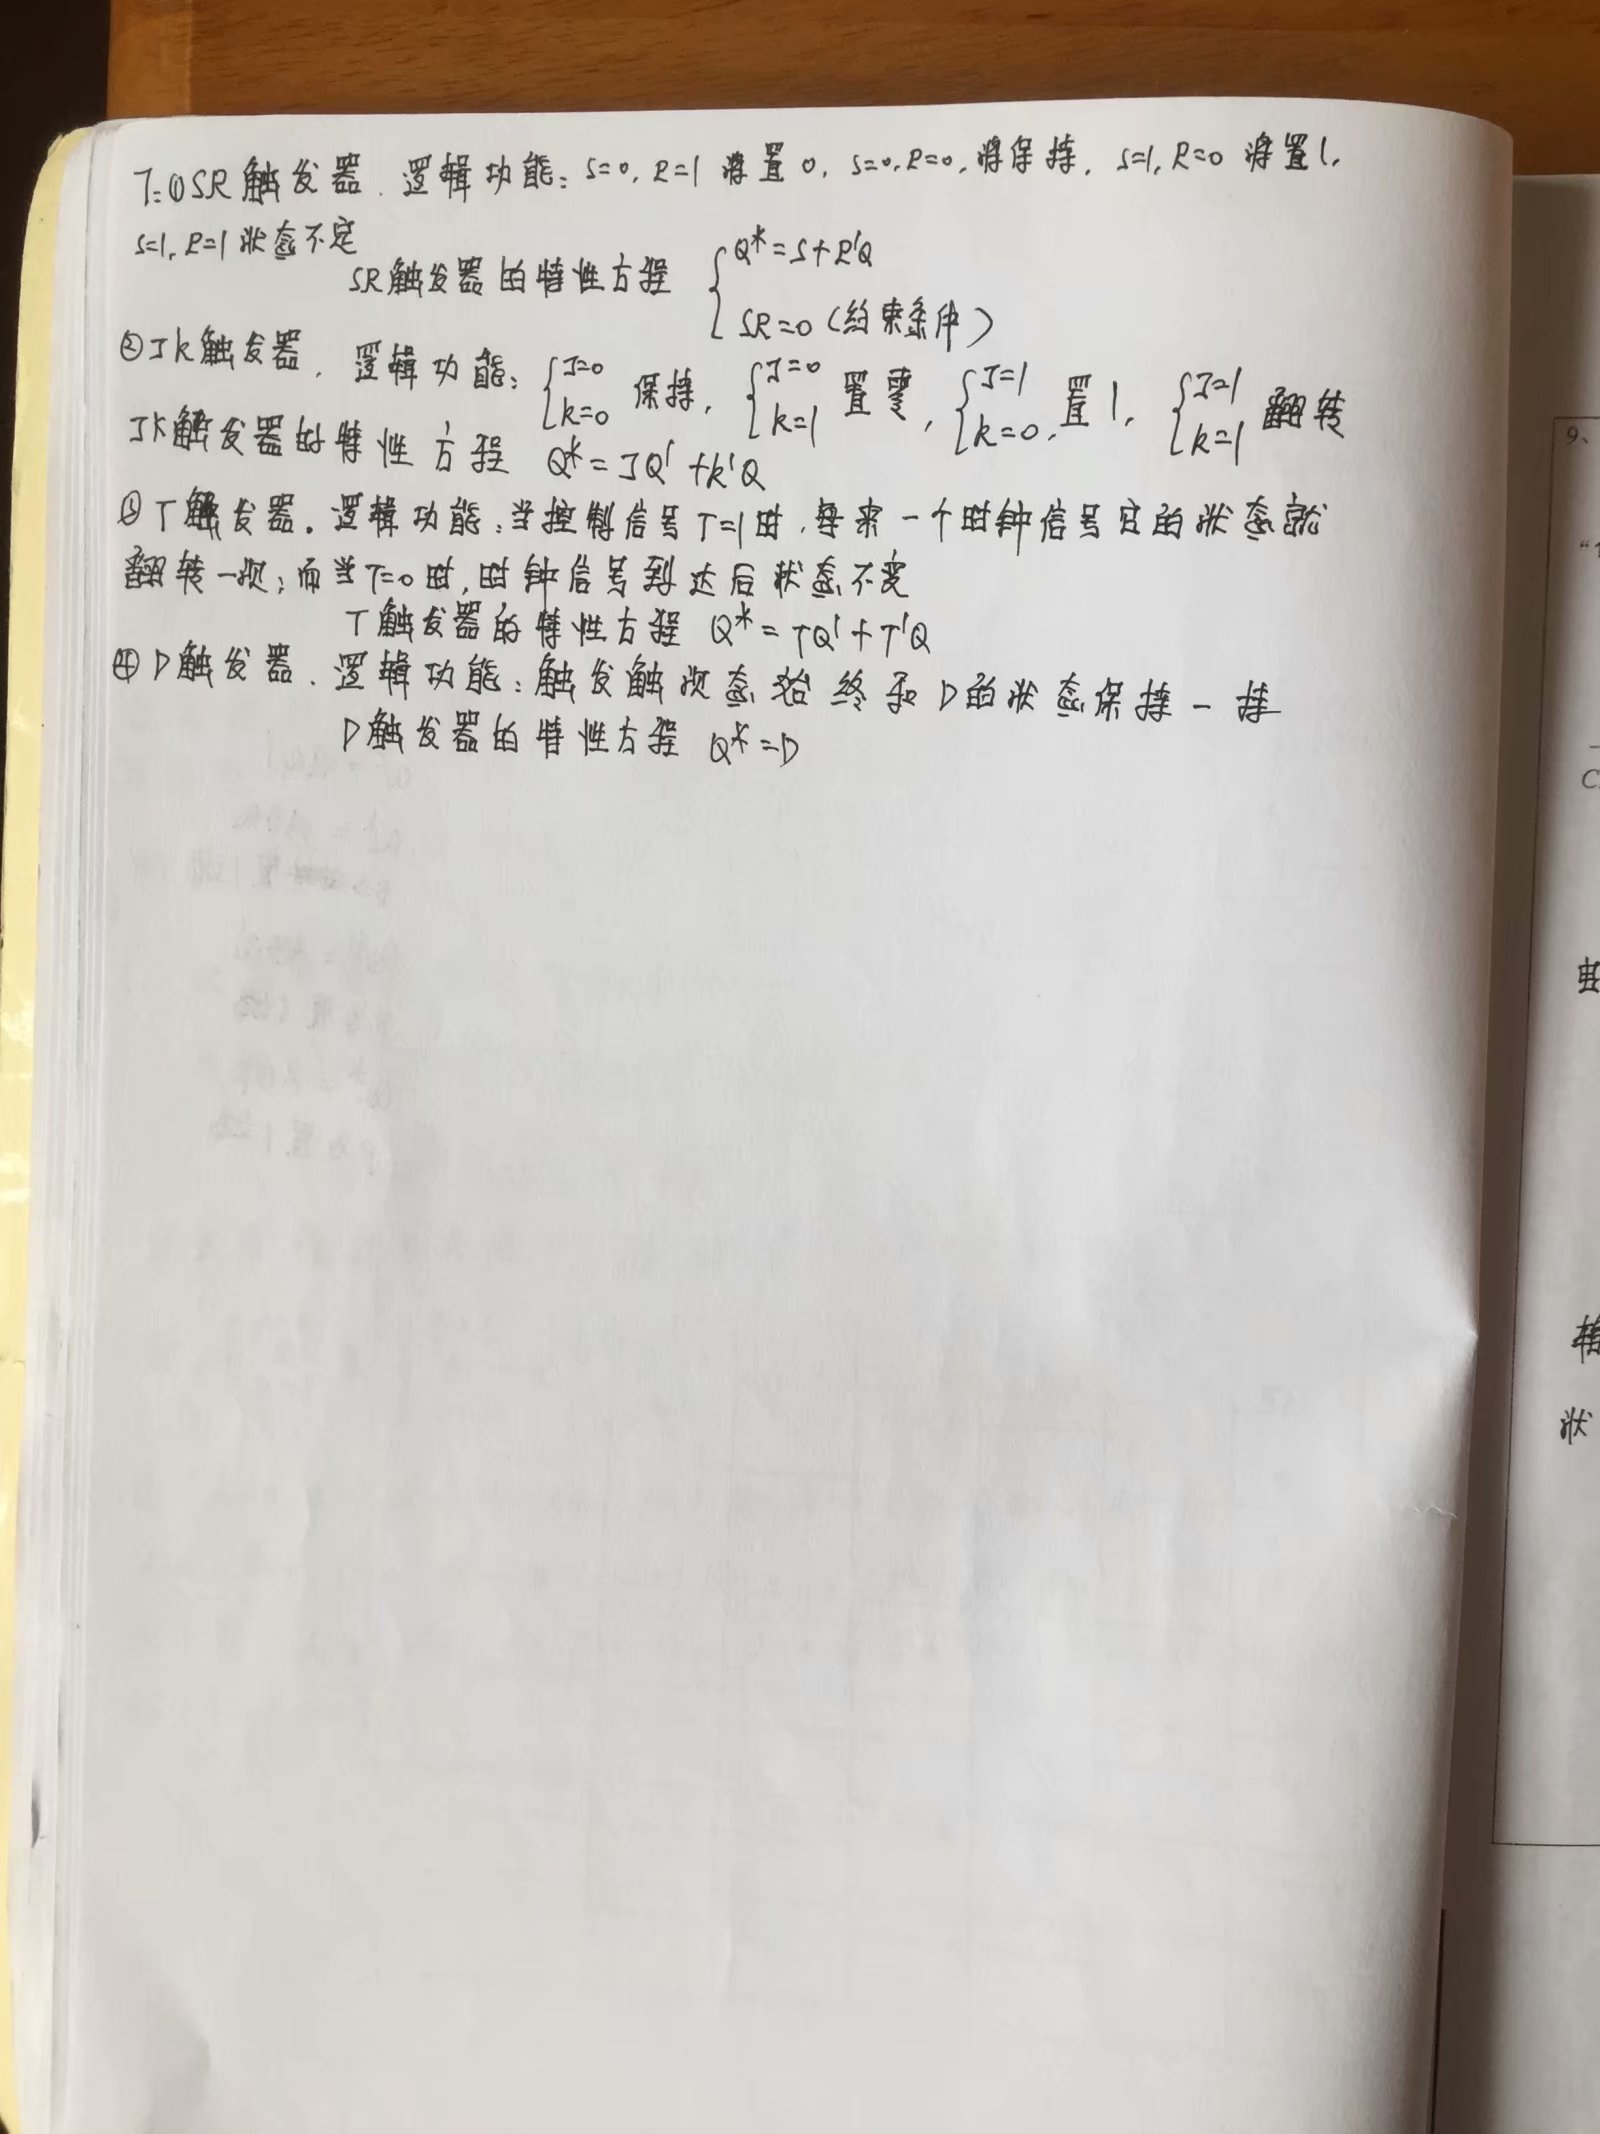 7:①SR触发器．逻辑功能：S=0，R=1 将置0，S=0，R=0，将保持，S=1，R=0 将置1，
S=1，R=1状态不定
SR触发器的特性方程 { Q*=S+R'Q
SR=0（约束条件）
②JK触发器．逻辑功能：{J=0 K=0 保持，{J=0 K=1 置零，{J=1 K=0，置1，{J=1 K=1 翻转
JK触发器的特性方程 Q*=JQ'+K'Q
③T触发器．逻辑功能：当控制信号T=1时，每来一个时钟信号它的状态就
翻转一次；而当T=0时，时钟信号到达后状态不变
T触发器的特性方程 Q*=TQ'+T'Q
④D触发器．逻辑功能：触发触次态始终和D的状态保持一持
D触发器的特性方程 Q*=D
9、
C
状